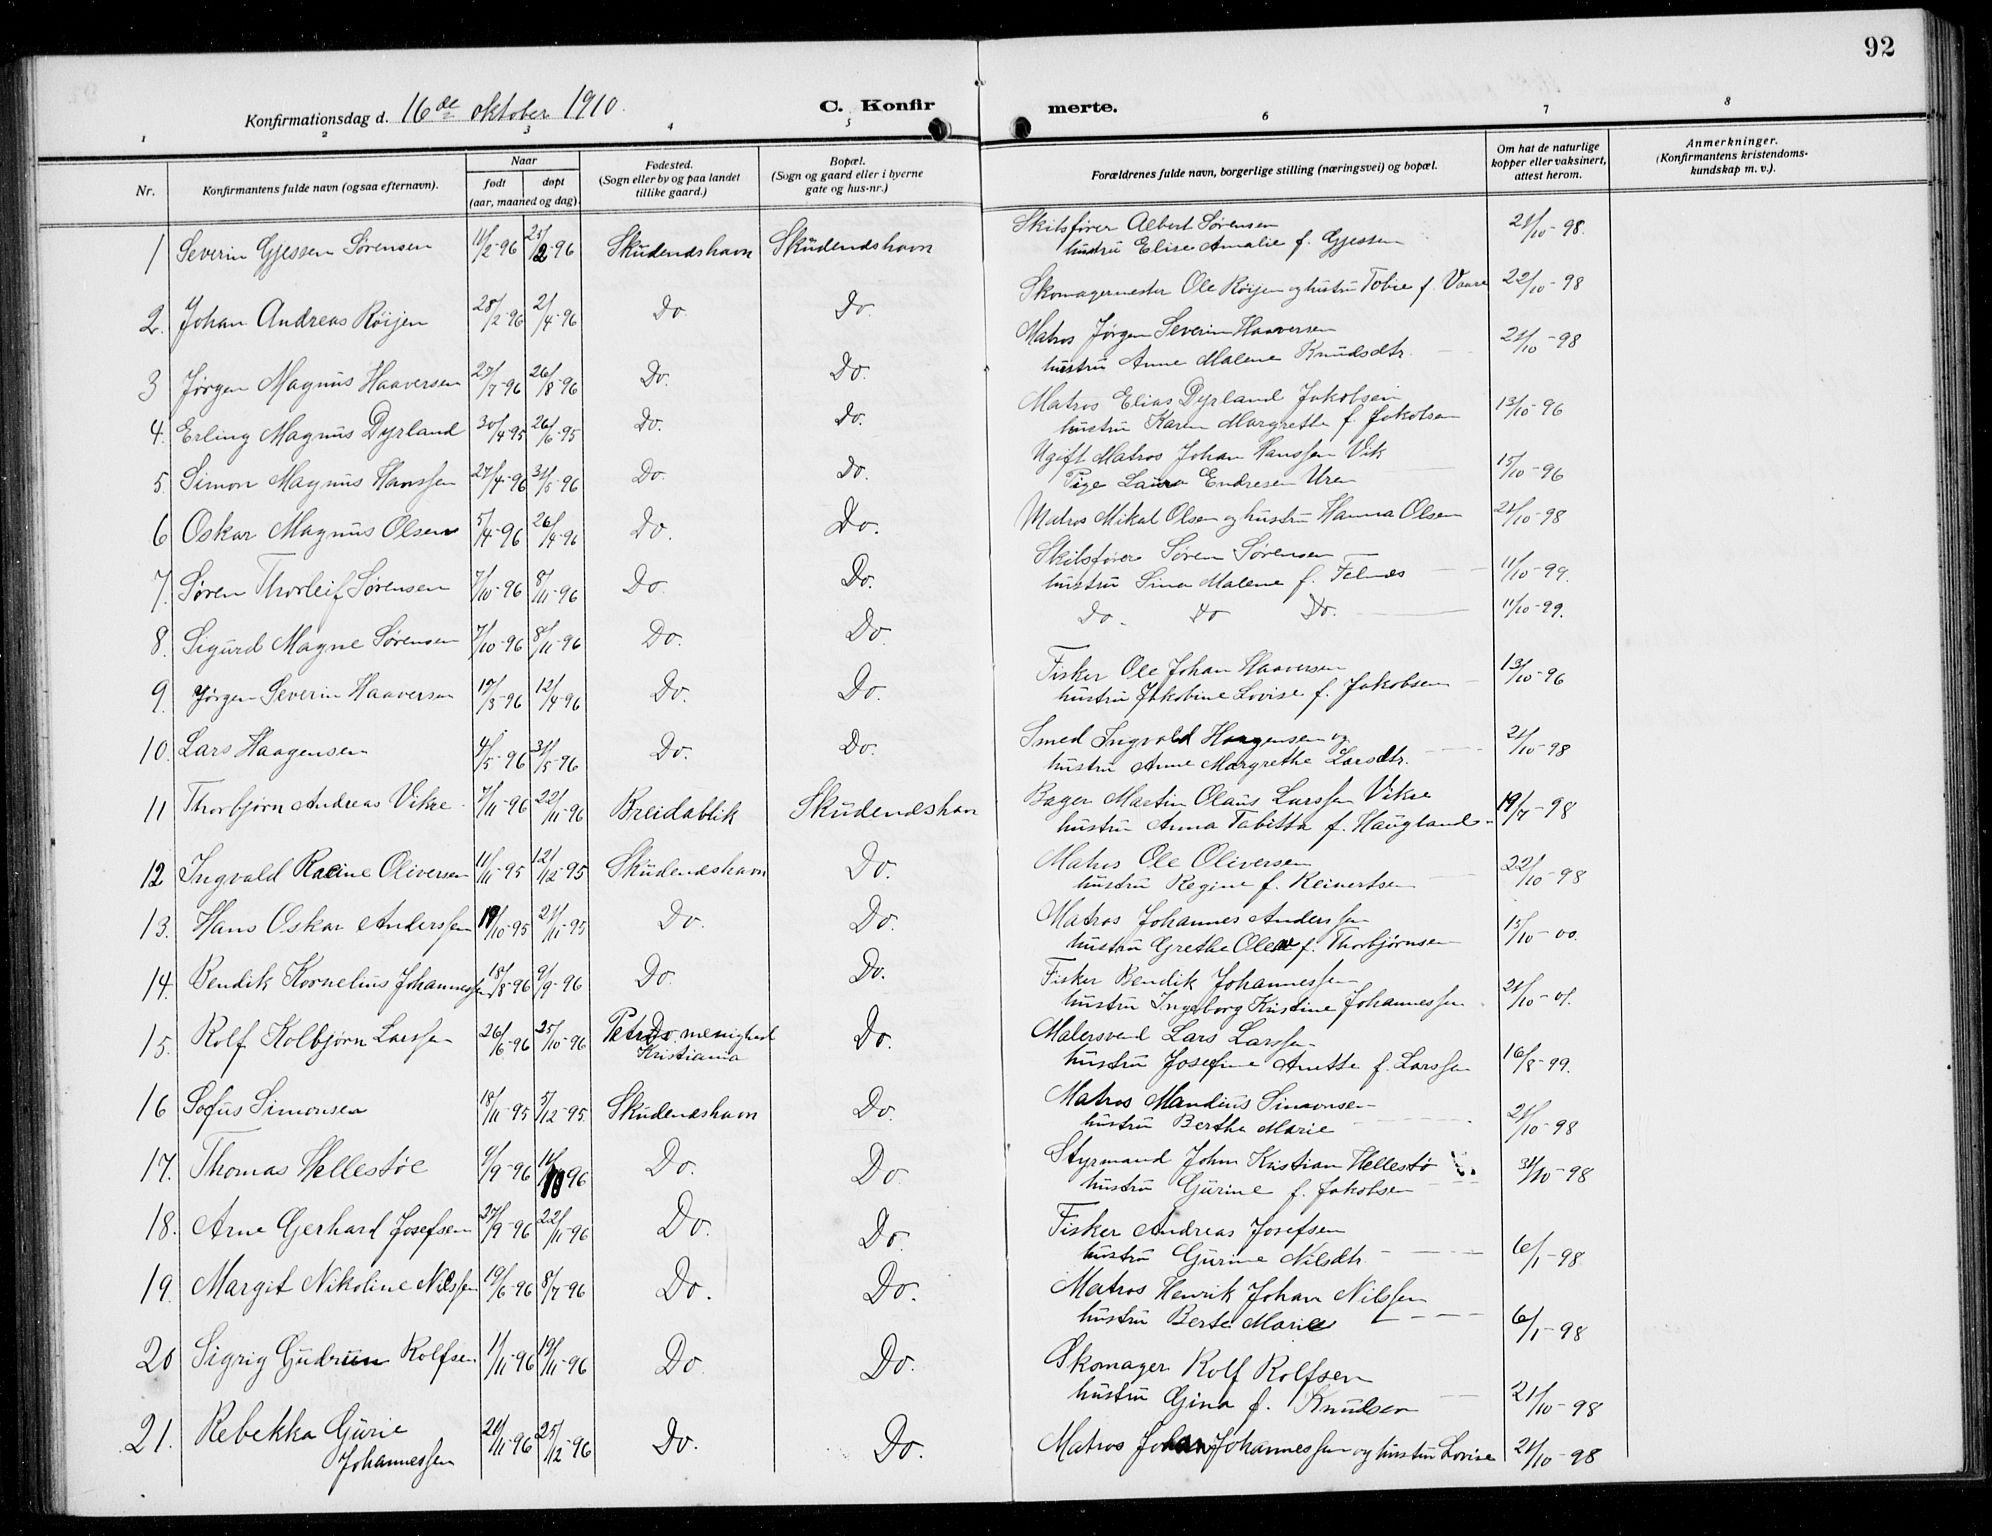 92
Konfirmationsdag d. 16de oktober 1910.
C. Konfir merte.
1 2 3 4 5 6 7 8
Nr.
Konfirmantens fulde navn (ogsaa efternavn).
Naar
født døpt
(aar, maaned og dag).
Fødested.
(Sogn eller by og paa landet
tillike gaard.)
Bopæl.
(Sogn og gaard eller i byerne
gate og hus-nr.)
Forældrenes fulde navn, borgerlige stilling (næringsvei) og bopæl.
Om hat de naturlige
kopper eller vaksinert,
attest herom.
Anmerkninger.
(Konfirmantens kristendoms-
kundskap m. v.).
1 Severin Gjessen Sørensen 11/2-96 25/2-96 Skudendshavn Skudendshavn Skibsfører Albert Sørensen
hustru Elise Amalie f. Gjessen 21/10-98.
2. Johan Andreas Røijen 28/2-96 2/4-96 Do Do. Skomagermester Ole Røijen og hustru Tobie f. Vaare 22/10-98
3 Jørgen Magnus Haaversen 27/7-96 26/8-96 Do. Do. Matros Jørgen Severin Haaversen
hustru Anne Malene Knudsdtr. 21/10-98
4. Erling Magnus Dyrland 30/4-95 26/6-95 Do. Do. Matros Elias Dyrland Jakobsen
hustru Karen Margrethe f. Jakobsen 13/10-96
5. Simon Magnus Hanssen 27/4-96 31/5-96 Do. Do. Ugift Matros Johan Hanssen Vik
Pige Laura Endresen Uren 15/10-96
6 Oskar Magnus Olsen 5/4-96 26/4-96 Do. Do. Matros Mikal Olsen og hustru Hanna Olsen 21/10-98
7. Søren Thorleif Sørensen 7/10-96 8/11-96 Do. Do. Skibsfører Søren Sørensen
hustru Sina Malene f. Felnes 11/10-99.
8. Sigurd Magne Sørensen 7/10-96 8/11-96 Do. Do. Do. Do Do. 11/10-99.
9. Jørgen Severin Haaversen 17/3-96 12/4-96 Do. Do. Fisker Ole Johan Haaversen
hustru Jakobine Lovise f. Jakobsen 13/10-96
10. Lars Haagensen 4/5-96 31/5-96 Do. Do. Smed Ingvald Haagensen og
hustru Anne Margrethe Larsdtr. 21/10-98
11 Thorbjørn Andreas Vikre 7/11-96 22/11-96 Breidablik Skudendshavn Bager Martin Olaus Larssen Vikre
hustru Anna Tabitta f. Haugland 19/7-98
12 Ingvald Racine Oliversen 11/11-95 12/12-95 Skudeneshavn Do. Matros Ole Oliversen
hustru Regine f. Reinertsen 22/10-98
13. Hans Oskar Anderssen 19/10-95 21/11-95 Do. Do. Matros Johannes Anderssen
hustru Grethe Olea f. Thorbjørnsen 15/10-00.
14. Bendik Kornelius Johannessen 18/8-96 9/9-96 Do. Do. Fisker Bendik Johannessen
hustru Ingeborg Kristine Johannessen 21/10-01.
15. Rolf Kolbjørn Larssen 26/6-96 25/10-96 Petri menighed
Kristiania Do. Malersvend Lars Larssen
hustru Josefine Anette f. Larssen 16/8-99.
16 Sofus Simonsen 18/11-95 5/12-95. Skudeneshavn Do. Matros Mandius Simonsen
hustru Berthe Marie 21/10-98
17. Thomas Hellestøe 9/9-96 14/10 96 Do. Do. Styrmand John Kristian Hellestø
hustru Gurine f. Jakobsen 31/10-98
18. Arne Gerhard Josefsen 27/9-96 22/11-96 Do. Do. Fisker Andreas Josefsen
hustru Gurine Nilsdtr. 6/1-98
19. Margit Nikoline Nilssen 19/6-96 8/7-96 Do. Do. Matros Henrik Johan Nilssen
hustru Berte Marie 6/1-98
20 Sigrig Gudrun Rolfsen 1/11-96 19/11-96 Do Do. Skomager Rolf Rolfsen
hustru Gina f. Knudsen 21/10-98
21. Rebekka Gurie
Johannessen 21/11-96 25/12-96 Do. Do. Matros Johan Johannessen og hustru Lovise 21/10-98